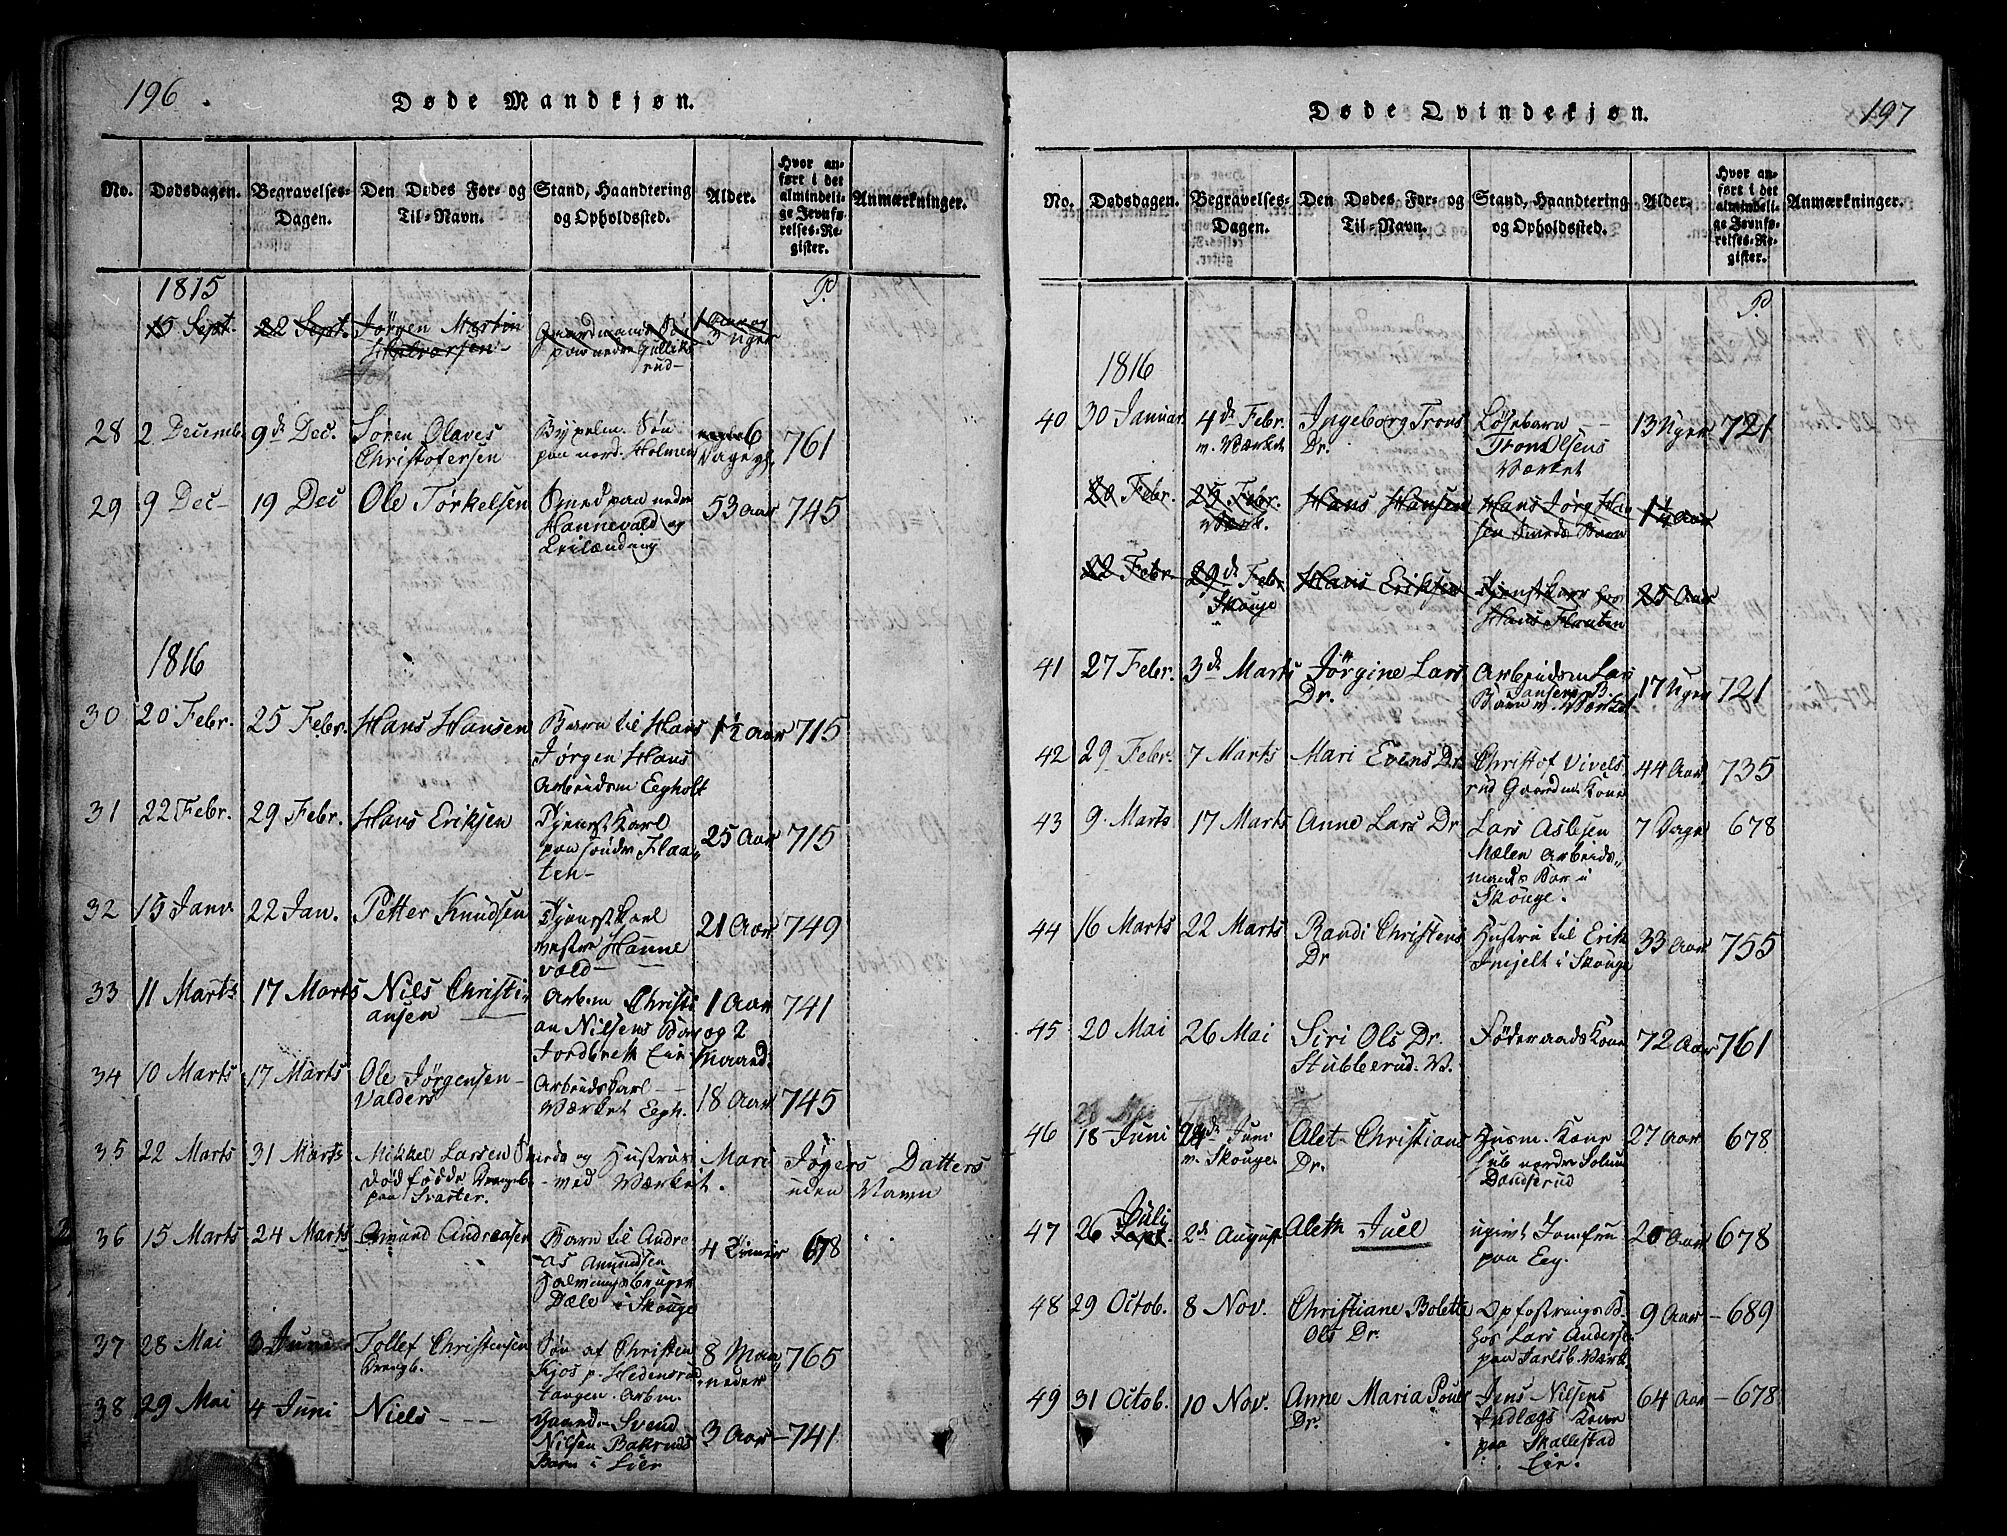 196
Døde Mandkjøn.
No.
Dødsdagen.
Begravelses-
Dagen.
Den Dødes For- og
Til-Navn.
Stand, Haandtering
og Opholdssted.
Alder.
Hvor an-
ført i det
almindeli-
ge Jevnfø-
relses-Re-
gister.
Anmærkninger.
1815
P.
15 Sept. 22 Sept. Jørgen Martin
Halvorsen
Gaardmands Søn
paa nedre Gullik-
rud
1 Aar og
3 Uger
28 2 Decemb. 9de Dec. Søren Olaves
Christofersen
Søn
paa nord. Holmen
6
Dage gl. 761
29 9 Dec 19 Dec Ole Torkelsen
Smed paa nedre
Hannevald og
53 Aar 745
1816
30 20 Febr. 25 Febr. Hans Hansen
Barn til Hans
Jørgen Hans
Arbeidsm Eegholt
1½ Aar 715
31 22 Febr. 29 Febr. Hans Eriksen
Tjenestkarl
paa søndr Flaa-
ten
25 Aar 715
32 15 Janv 22 Jan. Petter Knudsen
Tjenestkarl
vestre Hanne
vald
21 Aar 749
33 11 Marts 17 Marts Niels Christi-
ansen
Arb.m Christi
an Nilsens Barn
Lier
1 Aar
og 2
Maaned. 741
34 10 Marts 17 Marts Ole Jørgensen
Valders
Arbeidskarl
Værket Eegh.
18 Aar 745
35 22 Marts 31 Marts Mikkel Larsen Smeds og Hustrues Mari Jogers Datters
dødfødde Drengeb.
paa Svarter. med Værket. uden Navn
36 15 Marts 24 Marts Amund Andreasen
Barn til Andre
as Amundsen
Dæle i Skouge
4 Timer 678
37 28 Mai 3 Juni Tollef Christensen
Drengb.
Søn af Christen
Kjos p. Hedensrud
tangen. Arbm.
8 Maa-
neder 765
38 29 Mai 4 Juni Niels
Gaardm Svend
Nilsen Bakruds
Barn i Lier
3 Aar 741
197
Døde Qvindekjøn.
No.
Dødsdagen.
Begravelses-
Dagen.
Den Dødes For- og
Til-Navn.
Stand, Haandtering
og Opholdssted.
Alder.
Hvor an-
ført i det
almindeli-
ge Jevnfø-
relses-Re-
gister.
Anmærkninger.
P.
1816
40 30 Januar. 4de Febr.
v. Værket
Ingeborg Trons
Dr.
Løsebarn
Tron Olsens
Værket
13 Uger 721
20 Febr. 25 Febr.
Værk.
Hans Hansen
Hans Jørg Han
sen Smeds Barn
1½ Aar
22 Febr. 29de Febr
Skouge
Hans Eriksen
Tjenstkarl hos
Hans Flauten
25 Aar
41 27 Febr. 3de Marts Jørgine Lars
Dr.
Arbeidsm Lars
Jansens B.
Barn v. Værket
17 Uger 721
42 29 Febr. 7 Marts Mari Evens Dr.
Christof Vivels
rud Gaardm. Kone
44 Aar 735
43 9 Marts 17 Marts Anne Lars Dr
Lars Aslesen
Mælen Arbeids-
mands Bar i
Skouge.
7 Dage 678
44 16 Marts 22 Marts Randi Christens
Dr
Hustru til Erik
Imjelt i Skouge
33 Aar 755
45 20 Mai 26 Mai Siri Ols Dr.
Stubberud. V.
Føderaads Kone
72 Aar 761
46 18 Juni 24de Juni
v. Skouge
Alet Christians
Dr.
Husm. Kone
nordre Solum
Dandserud
27 Aar 678
47 26 Juli
Sept. 2de August Aleth Juel
ugivt Jomfru
paa Eeg.
20 Aar 678
48 29 Octob. 8 Nov. Christiane Bolette
Ols Dr.
Opfostrings B.
hos Lars Anders.
paa Jarlsb. Værk.
9 Aar 689
49 31 Octob. 10 Nov. Anne Maria Pouls
Dr.
Jens Nilsens
Indlægs Kone
paa Skallestad
Eie.
64 Aar 678